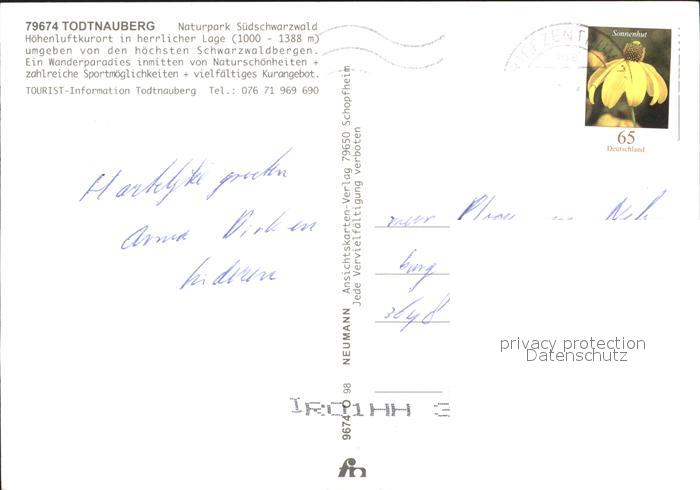 79674 TODTNAUBERG Naturpark Südschwarzwald
Höhenluftkurort in herrlicher Lage (1000 - 1388 m)
umgeben von den höchsten Schwarzwaldbergen.
Ein Wanderparadies inmitten von Naturschönheiten +
zahlreiche Sportmöglichkeiten + vielfältiges Kurangebot.
TOURIST-Information Todtnauberg Tel.: 076 71 969 690
Hartelijke groeten
Anna Dirk en
kinderen
9674 O 98 NEUMANN Ansichtskarten-Verlag 79650 Schopfheim
Jede Vervielfältigung verboten
Sonnenhut
65
Deutschland
burg
privacy protection
Datenschutz